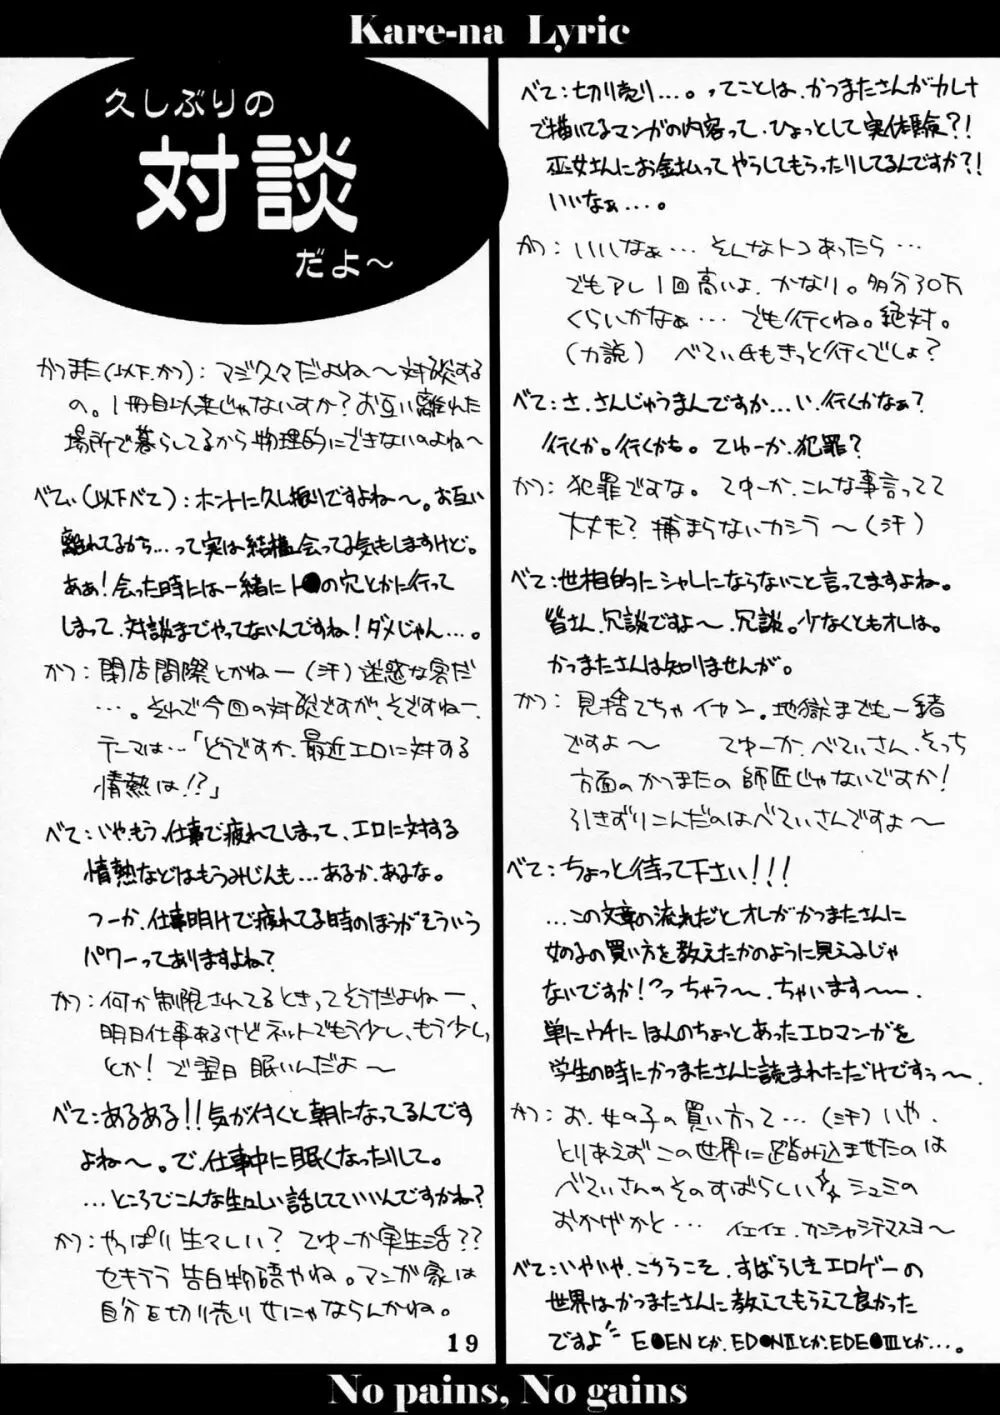 Kare-na Lyric
久しぶりの
対談
だよ〜
かつまた(以下、かつ):マジ久々だよね〜対談する
の。1冊目以来じゃないすか?お互い離れた
場所で暮らしてるから物理的にできないのよね〜
べてぃ(以下べて):ホントに久し振りですよね〜。お互い
離れてるから…って実は結構会ってる気もしますけど。
あぁ!会った時には一緒にト●の穴とかに行って
しまって、対談までやってないんですね!ダメじゃん…。
かつ:閉店間際とかねー(汗)迷惑な客だ
…。それで今回の対談ですが、そですねー、
テーマは…「どうですか、最近エロに対する
情熱は!?」
べて:いや、もう、仕事で疲れてしまって、エロに対する
情熱などはもうみじんも…あるか、あるな。
つーか、仕事明けで疲れてる時のほうがそういう
パワーってありますよね?
かつ:何か制限されてるときってそうだよねー、
明日仕事あるけどネットでもう少し、もう少し、
とか!で翌日眠いんだよ〜
べて:あるある!!気が付くと朝になってるんです
よね〜。で、仕事中に眠くなったりして。
…ところでこんな生々しい話してていいんですかね?
かつ:やっぱり生々しい?てゆーか実生活??
セキララ告白物語やね。マンガ家は
自分を切り売りせにゃならんかね。
19
べて:切り売り…。ってことは、かつまたさんがカレナ
で描いてるマンガの内容って、ひょっとして実体験?!
巫女さんにお金払ってやらしてもらったりしてるんですか?!
いいなぁ…。
かつ:いいなぁ…そんなトコあったら…
でもアレ1回高いよ、かなり。多分30万
くらいかなぁ…でも行くね。絶対。
(力説) べてぃ氏もきっと行くでしょ?
べて:さ、さんじゅうまんですか…い、行くかなぁ?
行くか。行くかも。てゆーか、犯罪?
かつ:犯罪ですな。てゆーか、こんな事言ってて
大丈夫?捕まらないカシラ〜(汗)
べて:世相的にシャレにならないこと言ってますよね。
皆さん、冗談ですよ〜、冗談。少なくともオレは。
かつまたさんは知りませんが。
かつ:見捨てちゃイヤン。地獄までも一緒
ですよ〜 てゆーか、べてぃさん、そっち
方面のかつまたの師匠じゃないですか!
引きずりこんだのはべてぃさんですよ〜
べて:ちょっと待って下さい!!!
…この文章の流れだとオレがかつまたさんに
女の子の買い方を教えたかのように見えるじゃ
ないですか!?っちゃう〜、ちゃいます〜、
単にウチにほんのちょっとあったエロマンガを
学生の時にかつまたさんに読まれただけですぅ〜、
かつ:お、女の子の買い方って…(汗)いや、
とりあえずこの世界に踏み込ませたのは
べてぃさんのそのすばらしい☆シュミの
おかげかと…イエイエ、カンシャシテマスヨ〜
べて:いやいや、こちらこそ、すばらしきエロゲーの
世界はかつまたさんに教えてもらえて良かった
ですよ E●ENとか、ED●NⅡとか、EDE●Ⅲとか…。
No pains, No gains